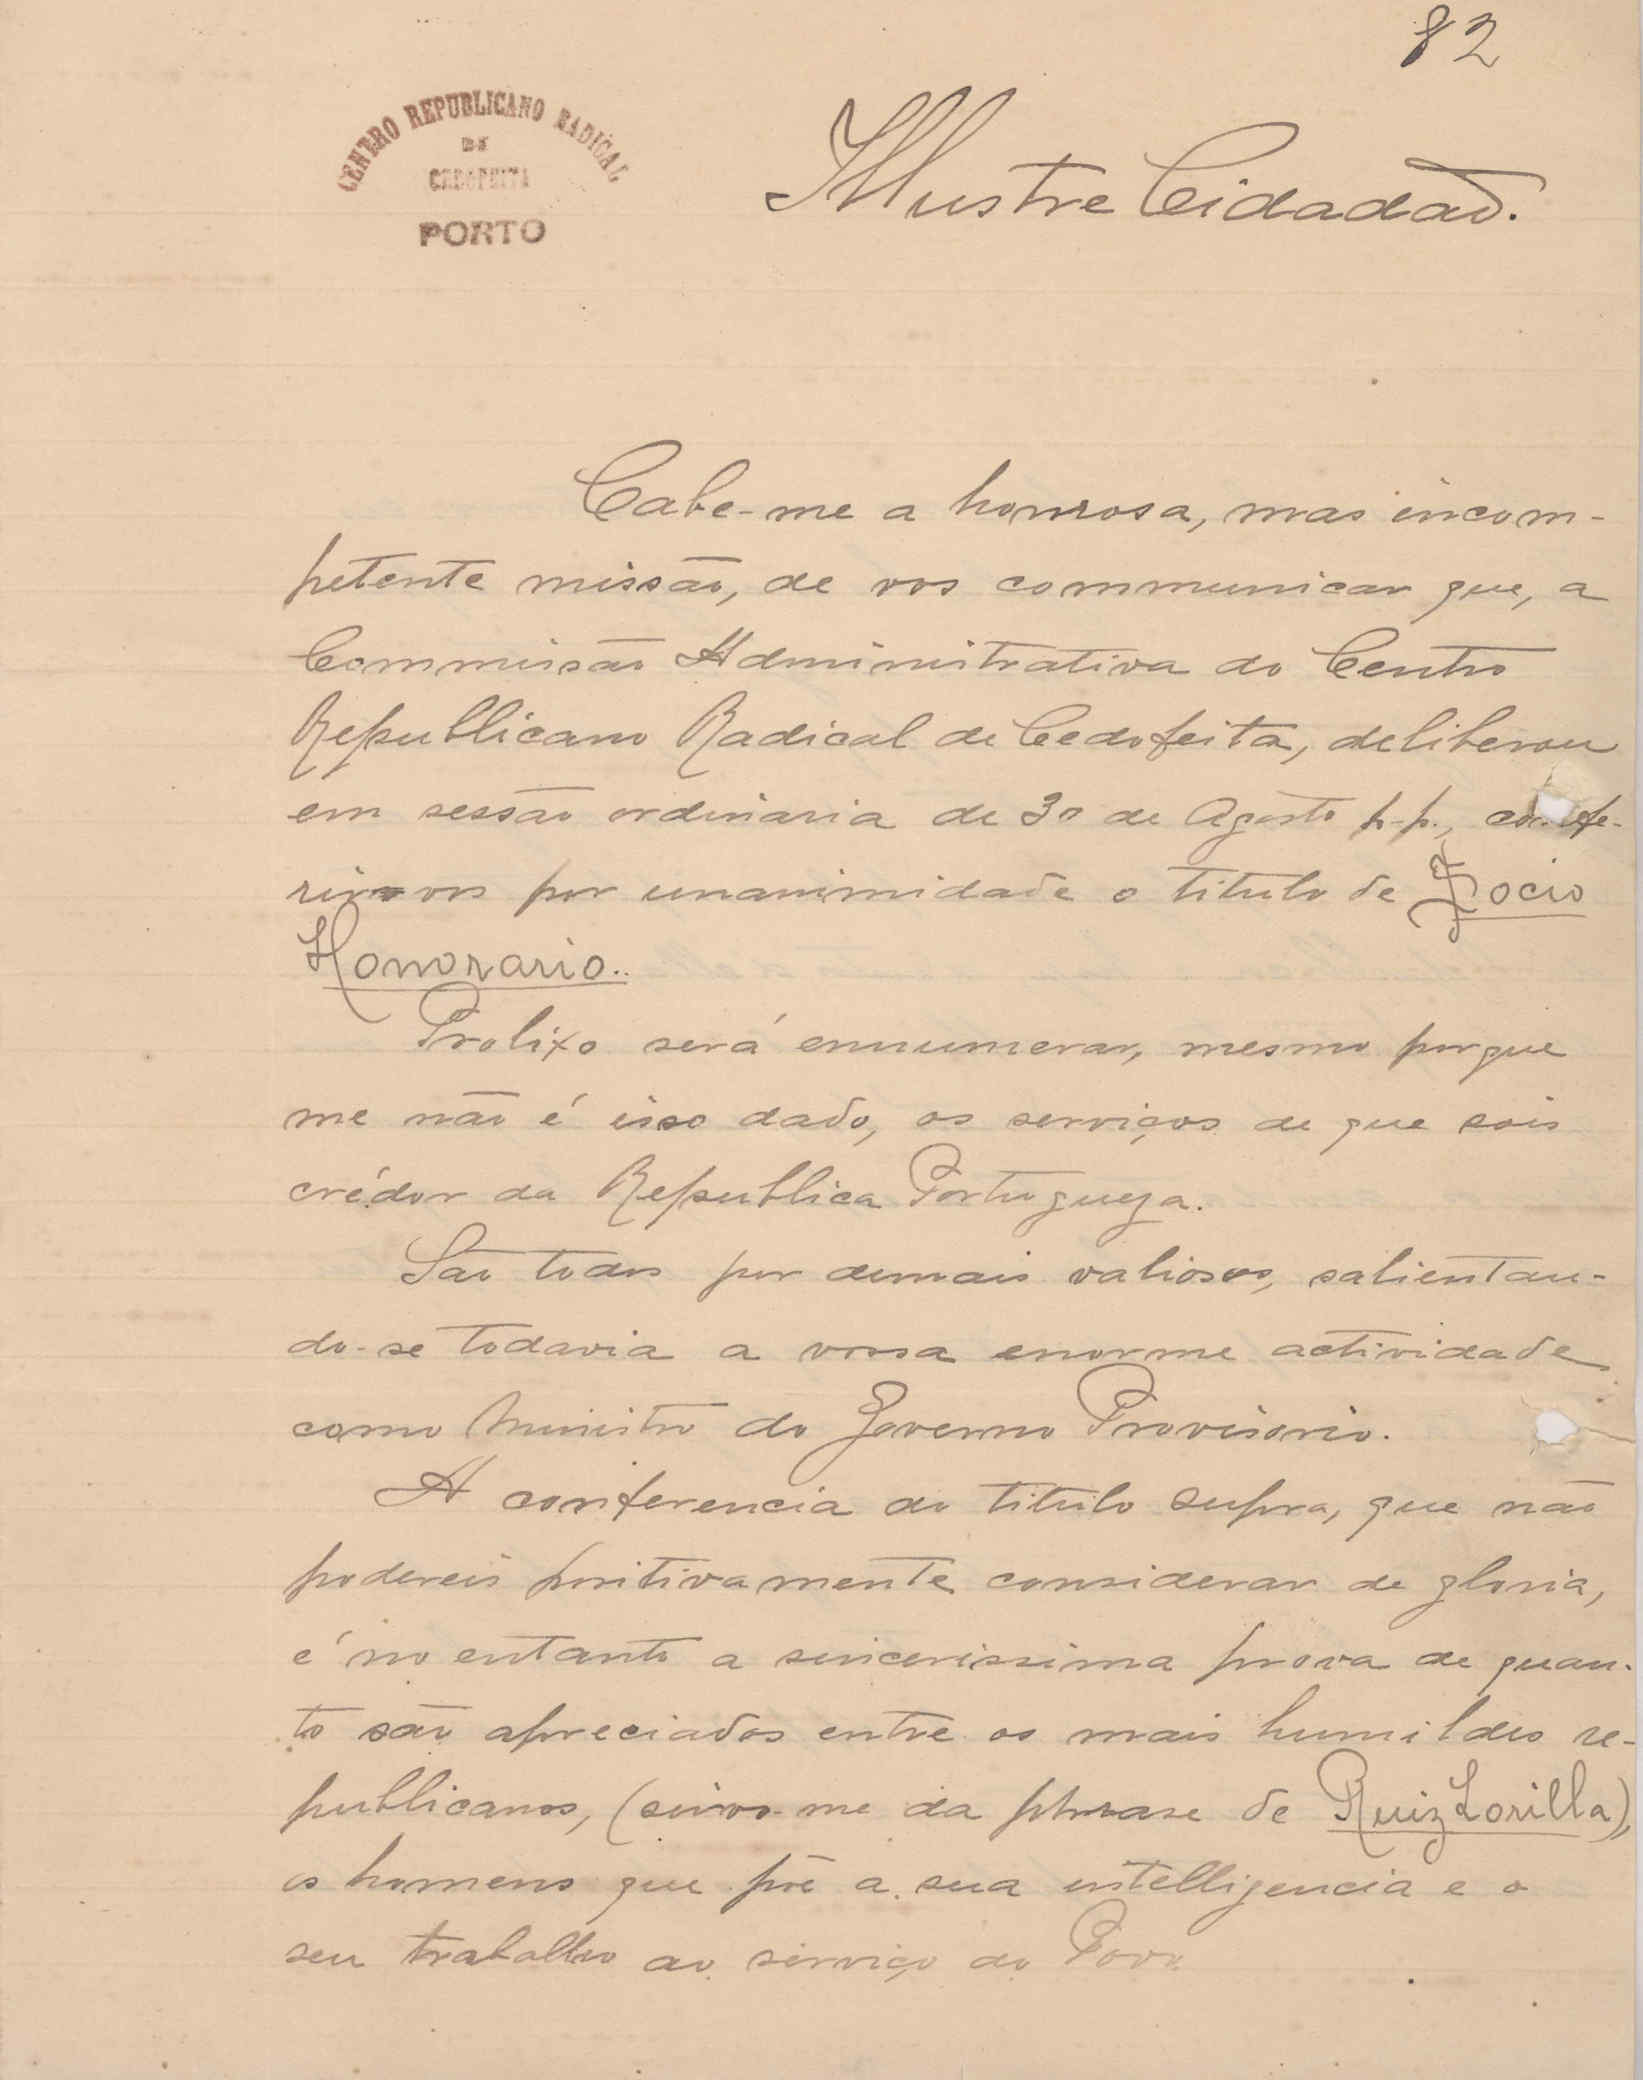 82
CENTRO REPUBLICANO RADICAL
DE
CEDOFEITA
PORTO
Illustre Cidadão.
Cabe-me a honrosa, mas incom-
petente missão, de vos communicar que, a
Commissão Administrativa do Centro
Republicano Radical de Cedofeita, deliberou
em sessão ordinaria de 30 de Agosto p.p., confe-
rir-vos por unanimidade o titulo de Socio
Honorario.
Prolixo será ennumerar, mesmo porque
me não é isso dado, os serviços de que sois
crédor da Republica Portugueza.
São todos por demais valiosos, salientan-
do-se todavia a vossa enorme actividade
como Ministro do Governo Provisorio.
A conferencia do titulo supra, que não
podereis positivamente considerar de gloria,
é no entanto a sincerissima prova de quan-
to são apreciados entre os mais humildes re-
publicanos, (sirvo-me da phrase de Ruiz Zorilla),
os homens que põe a sua intelligencia e o
seu trabalho ao serviço do Povo.